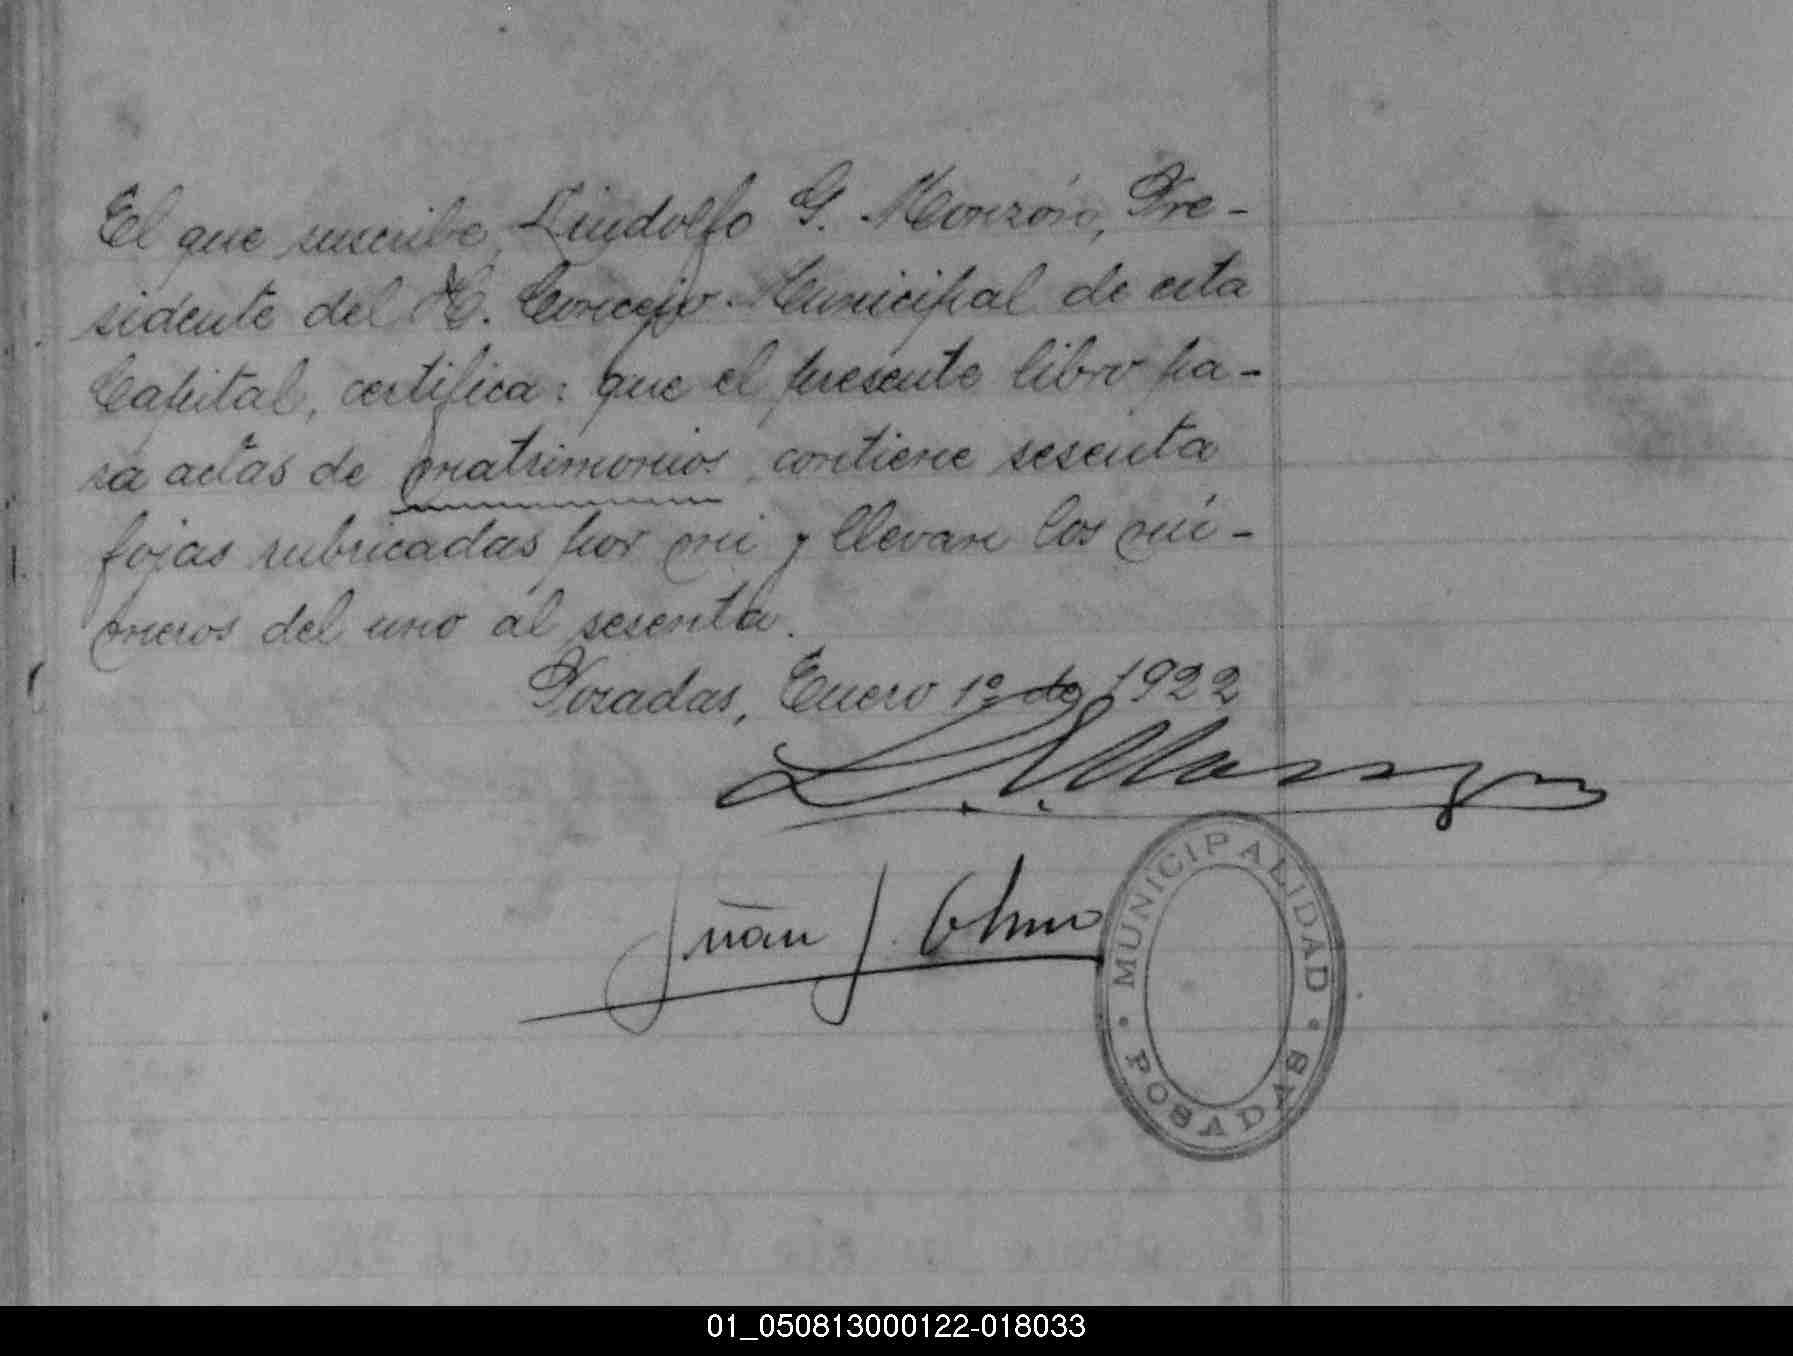 El que suscribe, Lindolfo G. Monzón, Pre-
sidente del H. Concejo Municipal de esta
Capital, certifica: que el presente libro pa-
ra actas de matrimonios, contiene sesenta
fojas rubricadas por mi y llevan los nú-
meros del uno al sesenta.
Posadas, Enero 1º de 1922
Juan J.
MUNICIPALIDAD
POSADAS
01_050813000122-018033